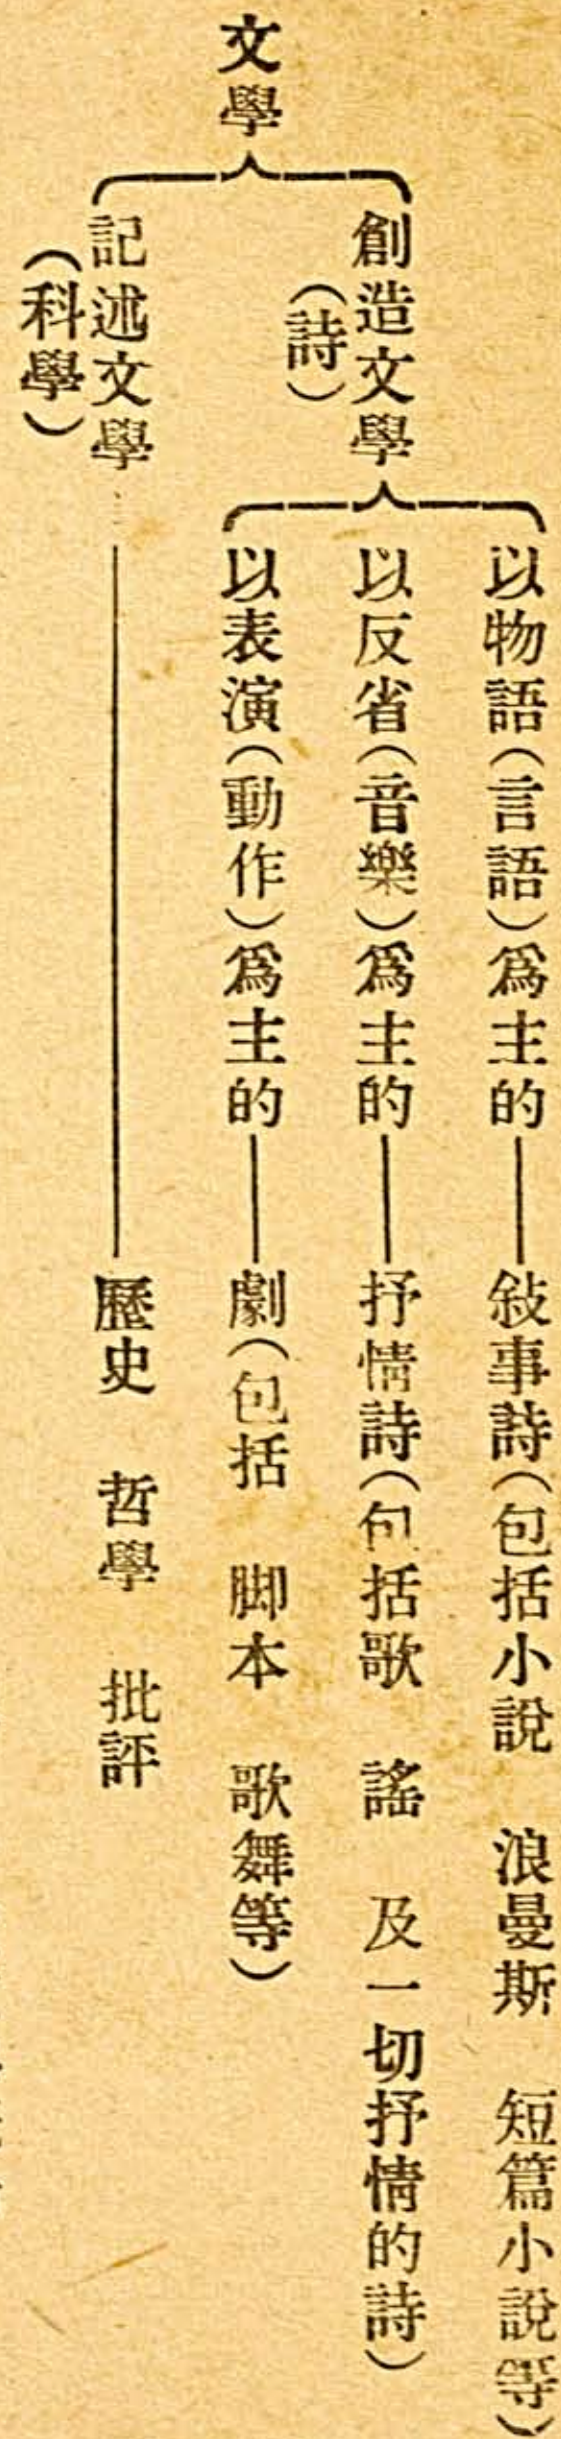 文學
創造文學
（詩）
以物語（言語）爲主的——敍事詩（包括小說　浪曼斯　短篇小說等）
以反省（音樂）爲主的——抒情詩（包括歌　謠　及一切抒情的詩）
以表演（動作）爲主的——劇（包括　脚本　歌舞等）
記述文學…————歷史　哲學　批評
（科學）